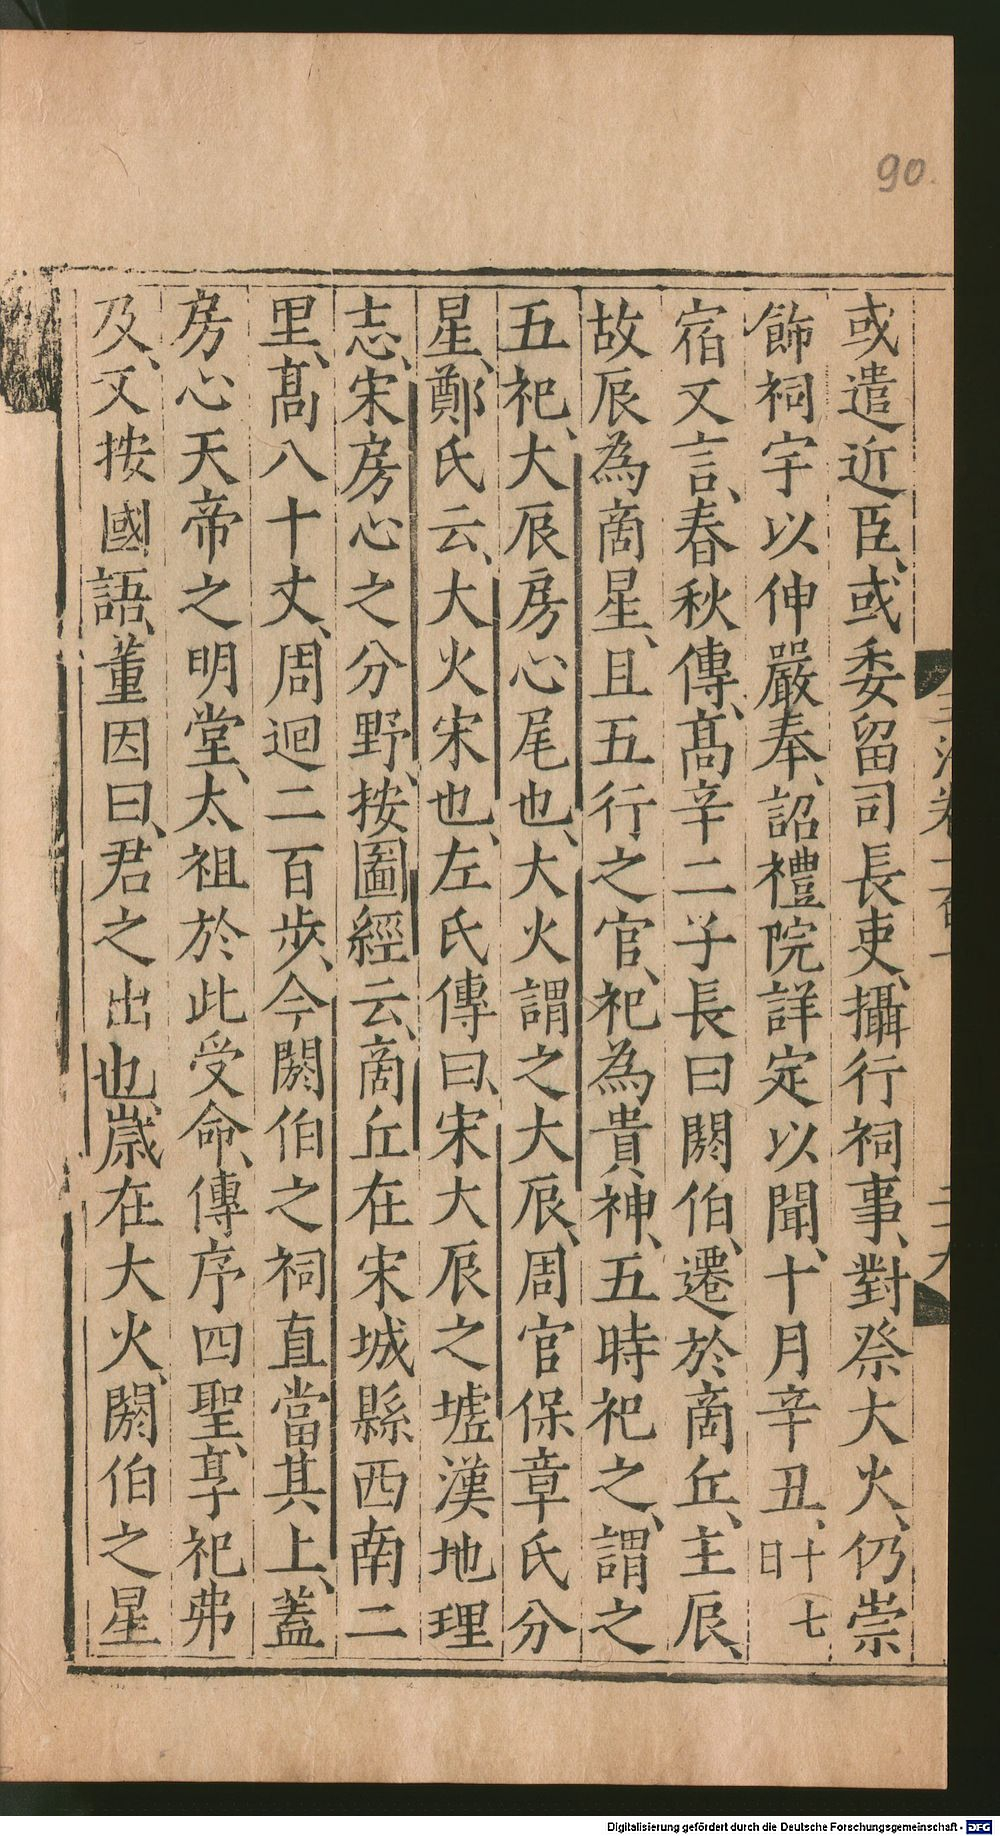 90
或遣近臣、或委留司長吏、攝行祠事、對祭大火、仍崇
飾祠宇以伸嚴奉、詔禮院詳定以聞、十月辛丑、十七日
宿又言、春秋傳、高辛二子長曰閼伯、遷於啇丘、主辰、
故辰為啇星、且五行之官、祀為貴神、五時祀之、謂之
五祀、大辰房心尾也、大火謂之大辰、周官保章氏分
星、鄭氏云、大火宋也、左氏傳曰、宋大辰之墟漢地理
志、宋房心之分野、按圖經云、啇丘在宋城縣西南二
里、高八十丈、周迴二百步、今閼伯之祠直當其上、蓋
房心天帝之明堂、太祖於此受命、傳序四聖、享祀弗
及、又按國語、董因曰、君之出也、嵗在大火、閼伯之星
Digitalisierung gefördert durch die Deutsche Forschungsgemeinschaft - DFG